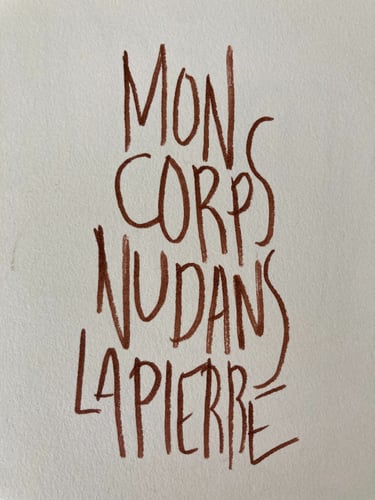 MON
CORPS
NU DANS
LA PIERRE